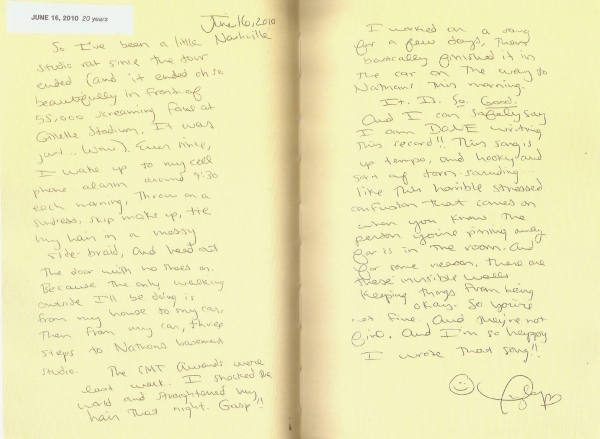 JUNE 16, 2010 20 years
June 16, 2010
Nashville
So I've been a little
studio rat since the tour
ended (and it ended oh so
beautifully in front of
55,000 screaming fans at
Gillette Stadium. It was
just... Wow). Ever since,
I wake up to my cell
phone alarm around 9:30
each morning, throw on a
sundress, skip make up, tie
my hair in a messy
side-braid, and head out
the door with no shoes on.
Because the only walking
outside I'll be doing is
from my house to my car,
then from my car, three
steps to Nathan's basement
studio. The CMT Awards were
last week. I shocked the
world and straightened my
hair that night. Gasp!!
I worked on a song
for a few days, then
basically finished it in
the car on the way to
Nathan's this morning.
It. Is. So. Good.
And I can safely say
I am DONE writing
this record!! This song is
up tempo, and hooky and
sort of torn sounding...
like this horrible stressed
confusion that comes on
when you know the
person you're pining away
for is in the room. And
for some reason, there are
these invisible walls
keeping things from being
okay. So you're
not fine. And they're not
fine. And I'm so happy
I wrote that song!!